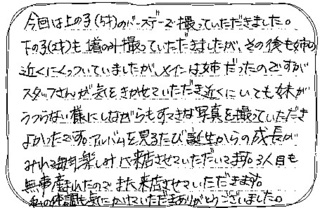 今回は上の子(5才)のバースデーで撮っていただきました。
下の子(3才)も途中撮っていただきましたが、その後も姉の
近くにくっついていましたが、メインは姉だったのですが
スタッフさんが気をきかせていただき近くにいても妹が
うつらない様にしながらもすてきな写真を撮っていただき
よかったです。アルバムを見るたび誕生からの成長が
みれて毎年楽しみに来店させていただいてます。3人目も
無事産まれたので、また来店させていただきます。
私の体調も気にかけていただきありがとうございました。